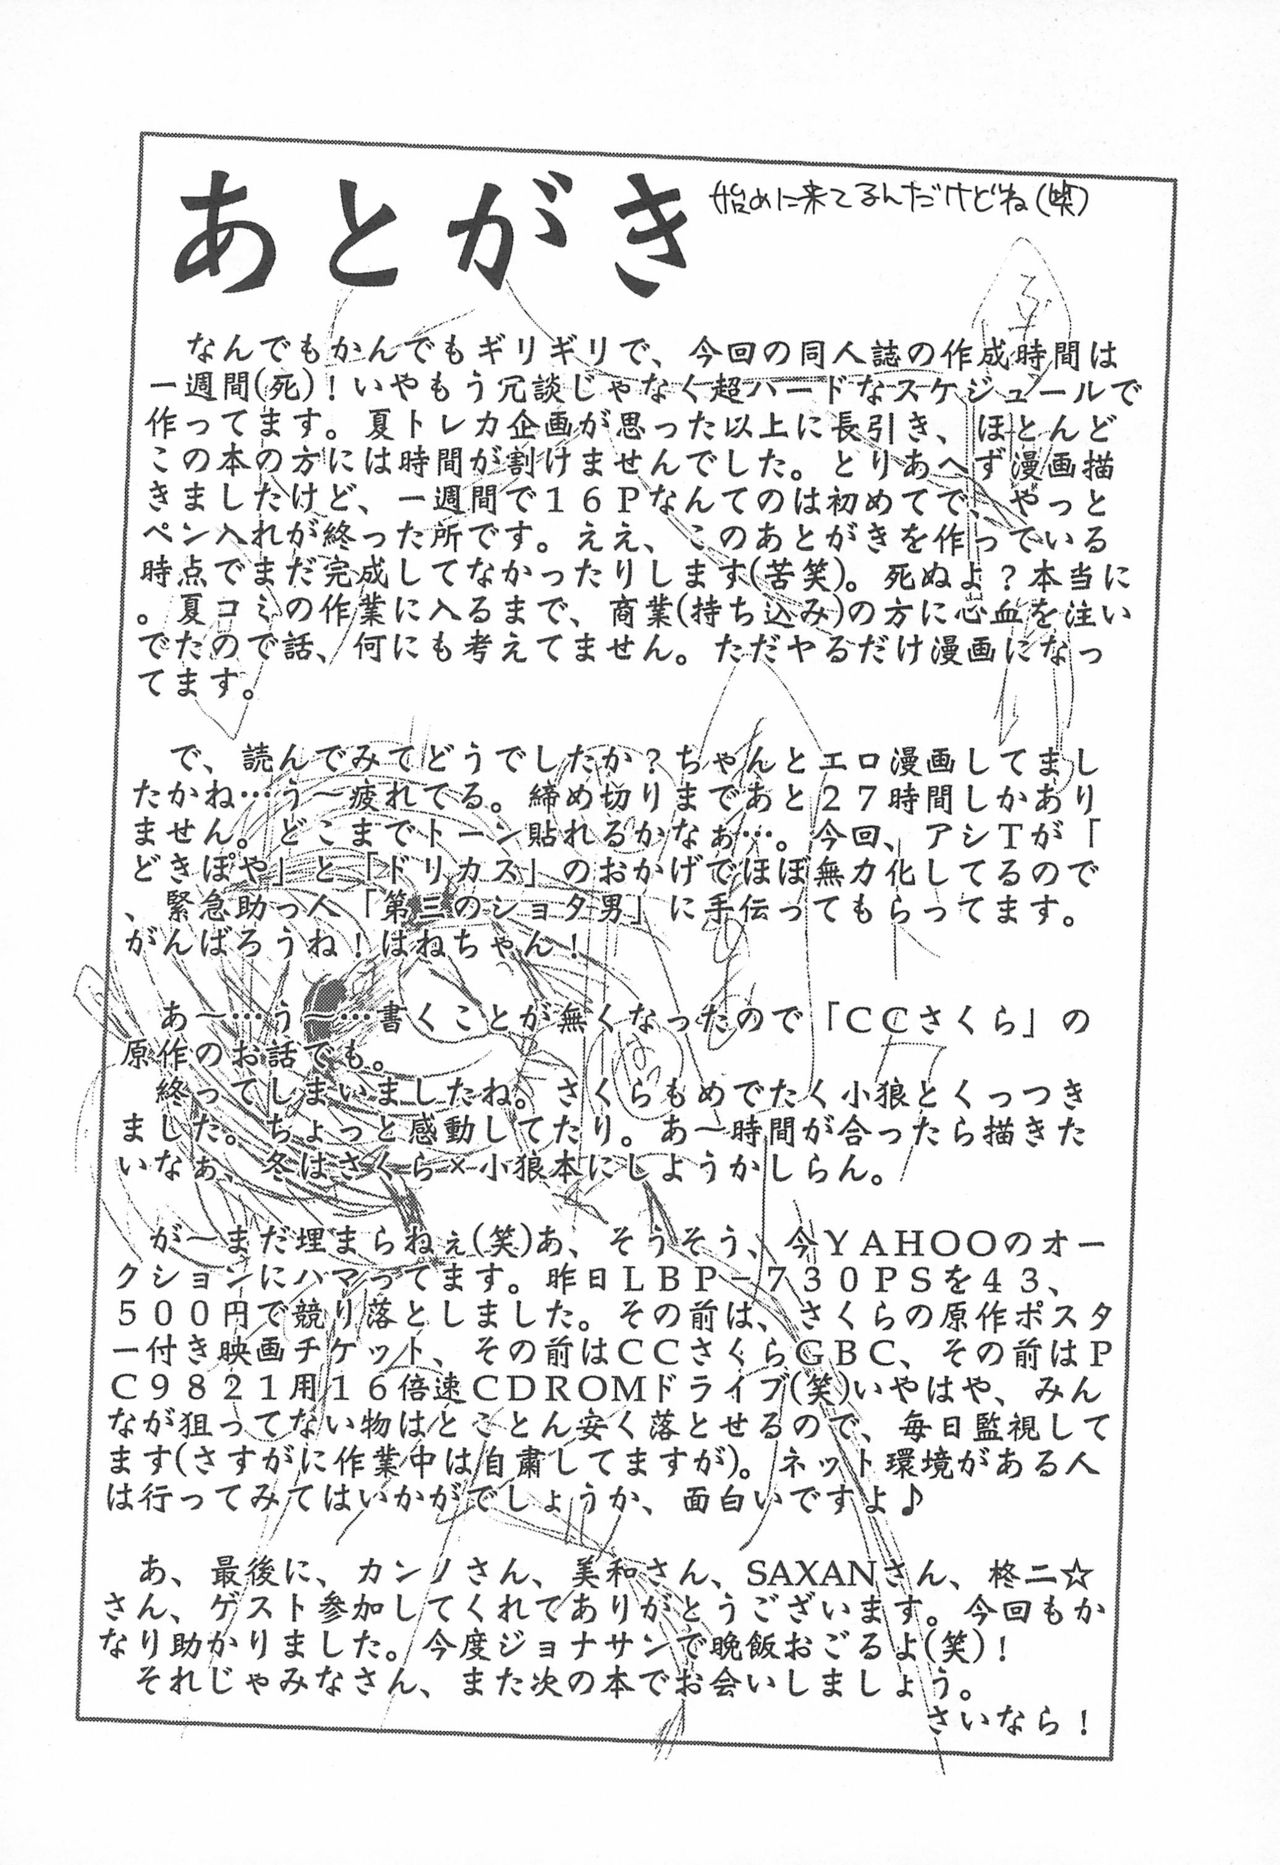 あとがき 始めに来てるんだけどね(笑)
なんでもかんでもギリギリで、今回の同人誌の作成時間は
一週間(死)！いやもう冗談じゃなく超ハードなスケジュールで
作ってます。夏トレカ企画が思った以上に長引き、ほとんど
この本の方には時間が割けませんでした。とりあへず漫画描
きましたけど、一週間で１６Ｐなんてのは初めてで、やっと
ペン入れが終った所です。ええ、このあとがきを作っている
時点でまだ完成してなかったりします(苦笑)。死ぬよ？本当に
。夏コミの作業に入るまで、商業(持ち込み)の方に心血を注い
でたので話、何にも考えてません。ただヤるだけ漫画になっ
てます。
で、読んでみてどうでしたか？ちゃんとエロ漫画してまし
たかね…う～疲れてる。締め切りまであと２７時間しかあり
ません。どこまでトーン貼れるかなぁ…。今回、アシＴが「
どきぽや」と「ドリカス」のおかげでほぼ無力化してるので
、緊急助っ人「第三のショタ男」に手伝ってもらってます。
がんばろうね！はねちゃん！
あ～…う～…書くことが無くなったので「ＣＣさくら」の
原作のお話でも。
終ってしまいましたね。さくらもめでたく小狼とくっつき
ました。ちょっと感動してたり。あ～時間が合ったら描きた
いなぁ、冬はさくら×小狼本にしようかしらん。
が～まだ埋まらねぇ(笑)あ、そうそう、今ＹＡＨＯＯのオー
クションにハマってます。昨日ＬＢＰ－７３０ＰＳを４３、
５００円で競り落としました。その前は、さくらの原作ポスタ
ー付き映画チケット、その前はＣＣさくらＧＢＣ、その前はＰ
Ｃ９８２１用１６倍速ＣＤＲＯＭドライブ(笑)いやはや、みん
なが狙ってない物はとことん安く落とせるので、毎日監視して
ます(さすがに作業中は自粛してますが)。ネット環境がある人
は行ってみてはいかがでしょうか、面白いですよ♪
あ、最後に、カンノさん、美和さん、SAXANさん、柊二☆
さん、ゲスト参加してくれてありがとうございます。今回もか
なり助かりました。今度ジョナサンで晩飯おごるよ(笑)！
それじゃみなさん、また次の本でお会いしましょう。
さいなら！